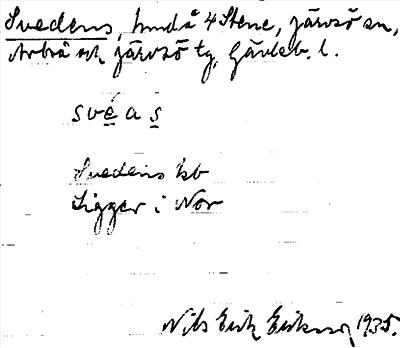 Svedens, hmd å 4 Stene, Järvsö sn,
Arbrå och Järvsö tg, Gävleb. l.
svéas
Svedens hb
Ligger i Nor
Nils Erik Eriksson 1935.